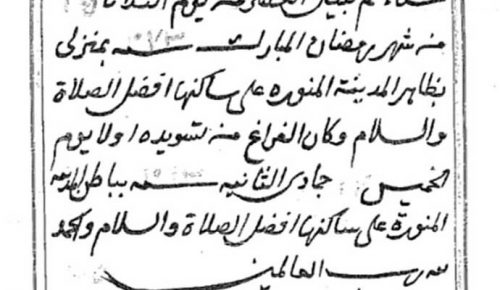 تم تبييض منه يوم الثلاثا
منه شهر رمضان المبارك سنه بمنزلى
بظاهر المدينة المنوره على ساكنها افضل الصلاة
والسلام وكان الفراغ منه تسويده اولا يوم
الخميس جمادى الثانيه سنه بباطن المدينه
المنورة على ساكنها افضل الصلاة والسلام والحمد
لله رب العالمين